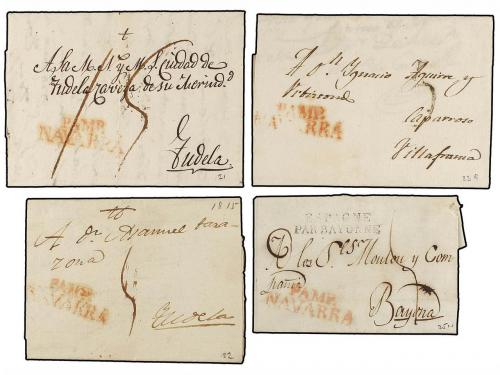 A la M. N. y M. L. Ciudad de
Tudela cavera de su Merind.d
PAMP.
NAVARRA
Tudela.
21
A Dn Ygnacio Aguirre y
PAMP.
NAVARRA
Caparroso
Villafranca
1815
A Dn Manuel Tara-
zona
PAMP.
NAVARRA
Tudela
22
ESPAGNE
PAR BAYONNE
A los S.res Moulou y Com
pañia
PAMP.
NAVARRA
Bayona